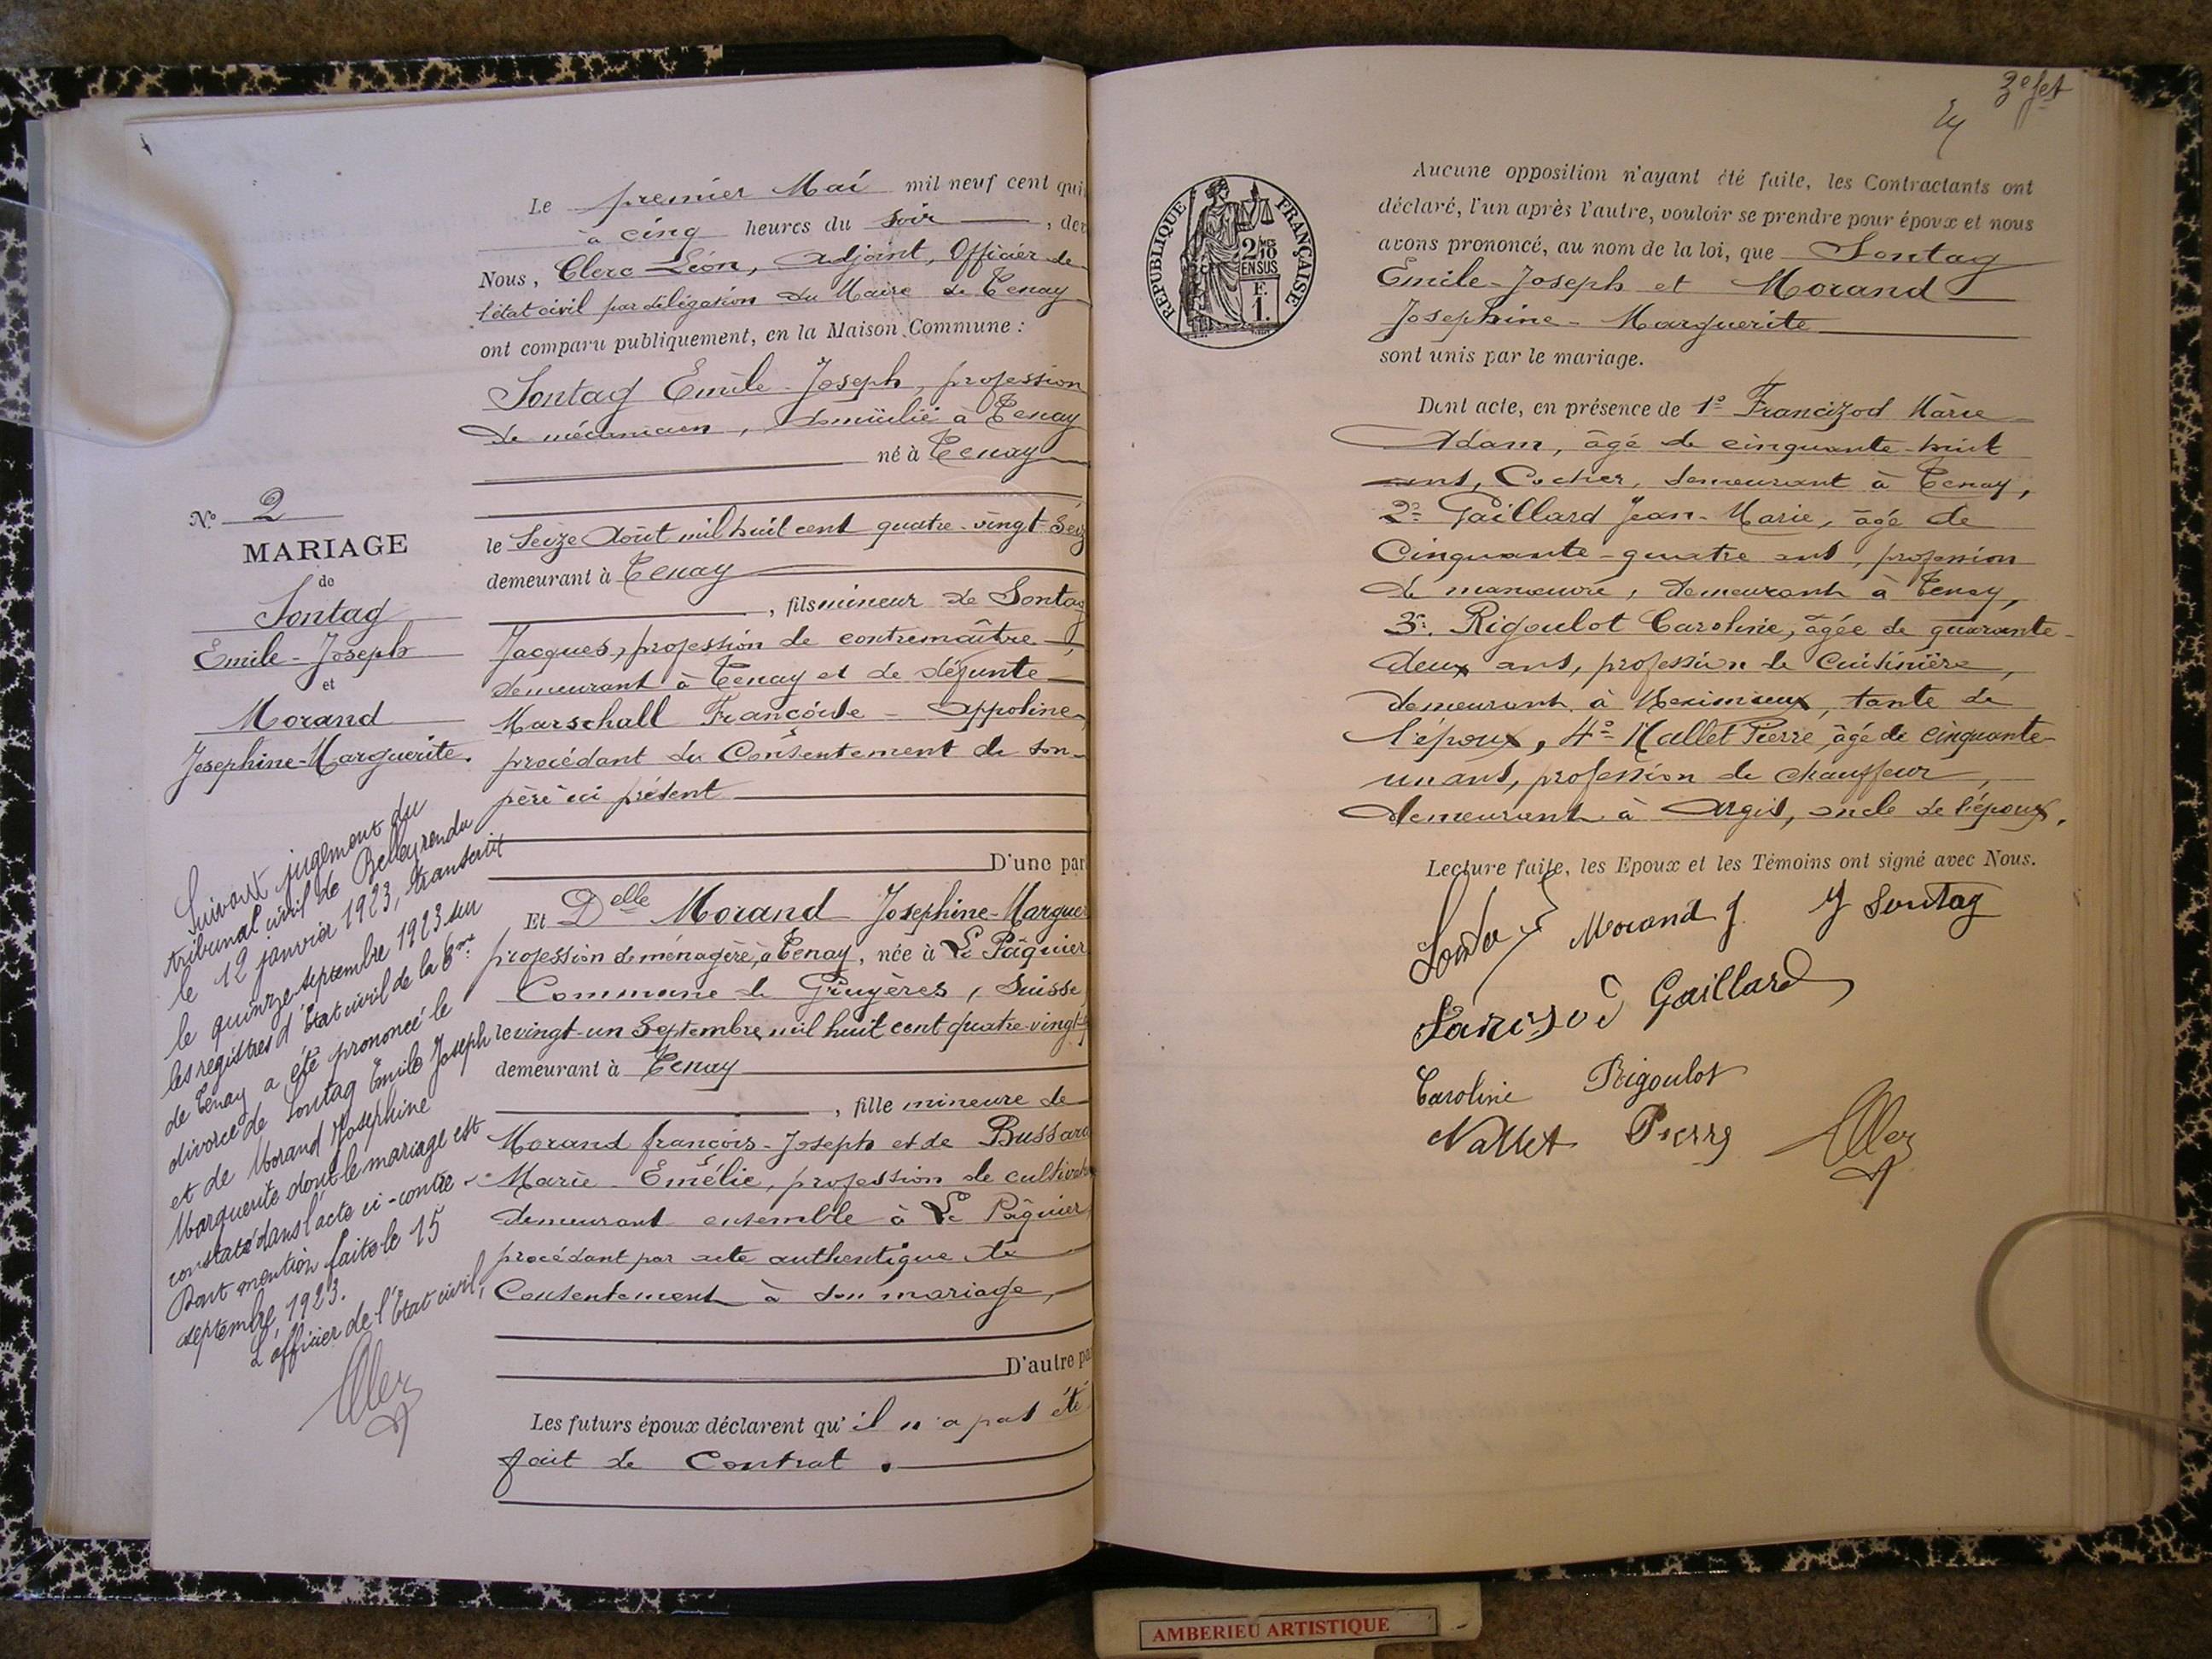 Le premier Mai mil neuf cent qui
à cinq heures du soir, dev
Nous, Clerc Léon, adjoint, Officier de
l'état civil par délégation du Maire de Tenay
ont comparu publiquement, en la Maison Commune :
Sontag Emile-Joseph, profession
de mécanicien, domicilié à Tenay
né à Tenay
le Seize Août mil huit cent quatre-vingt-Seiz
demeurant à Tenay
, fils mineur de Sontag
Jacques, profession de contremaître,
demeurant à Tenay et de défunte
Marschall Françoise-Appoline,
procédant du Consentement de son
père ici présent
D'une par
Et Delle Morand Josephine-Margue
profession de ménagère, à Tenay, née à Le Pâquier
Commune de Gruyères, Suisse
le vingt-un Septembre mil huit cent quatre-vingt
demeurant à Tenay
, fille mineure de
Morand françois-Joseph et de Bussard
Marie-Emélie, profession de cultivat
demeurant ensemble à Le Pâquier,
procédant par acte authentique de
Consentement à son mariage,
D'autre pa
Les futurs époux déclarent qu'il n'a pas été
fait de Contrat.
N° 2
MARIAGE
de
Sontag
Emile-Joseph
et
Morand
Josephine-Marguerite.
Suivant jugement du
tribunal civil de Belley rendu
le 12 janvier 1923, transcrit
le quinze septembre 1923 sur
les registres d'état civil de la Cne
de Tenay a été prononcé le
divorce de Sontag Emile Joseph
et de Morand Joséphine
Marguerite dont le mariage est
constaté dans l'acte ci-contre.
Dont mention faite le 15
septembre 1923.
L'officier de l'état civil,
3e fet
RÉPUBLIQUE FRANÇAISE
2/10
EN SUS
F.
1.
Aucune opposition n'ayant été faite, les Contractants ont
déclaré, l'un après l'autre, vouloir se prendre pour époux et nous
avons prononcé, au nom de la loi, que Sontag
Emile-Joseph et Morand
Josephine-Marguerite
sont unis par le mariage.
Dont acte, en présence de 1° Francizod Marie
Adam, âgé de cinquante-huit
ans, Cocher, demeurant à Tenay,
2° Gaillard Jean-Marie, âgé de
Cinquante-quatre ans, profession
de manœuvre, demeurant à Tenay,
3°. Rigoulot Caroline, âgée de quarante-
deux ans, profession de Cuisinière,
demeurant à Meximieux, tante de
l'époux, 4° Nallet Pierre, âgé de cinquante-
un ans, profession de chauffeur,
demeurant à Argis, oncle de l'époux.
Lecture faite, les Epoux et les Témoins ont signé avec Nous.
Sontag Morand J. J Sontag
Gaillard
Caroline Rigoulot
Nallet Pierre
AMBERIEU ARTISTIQUE